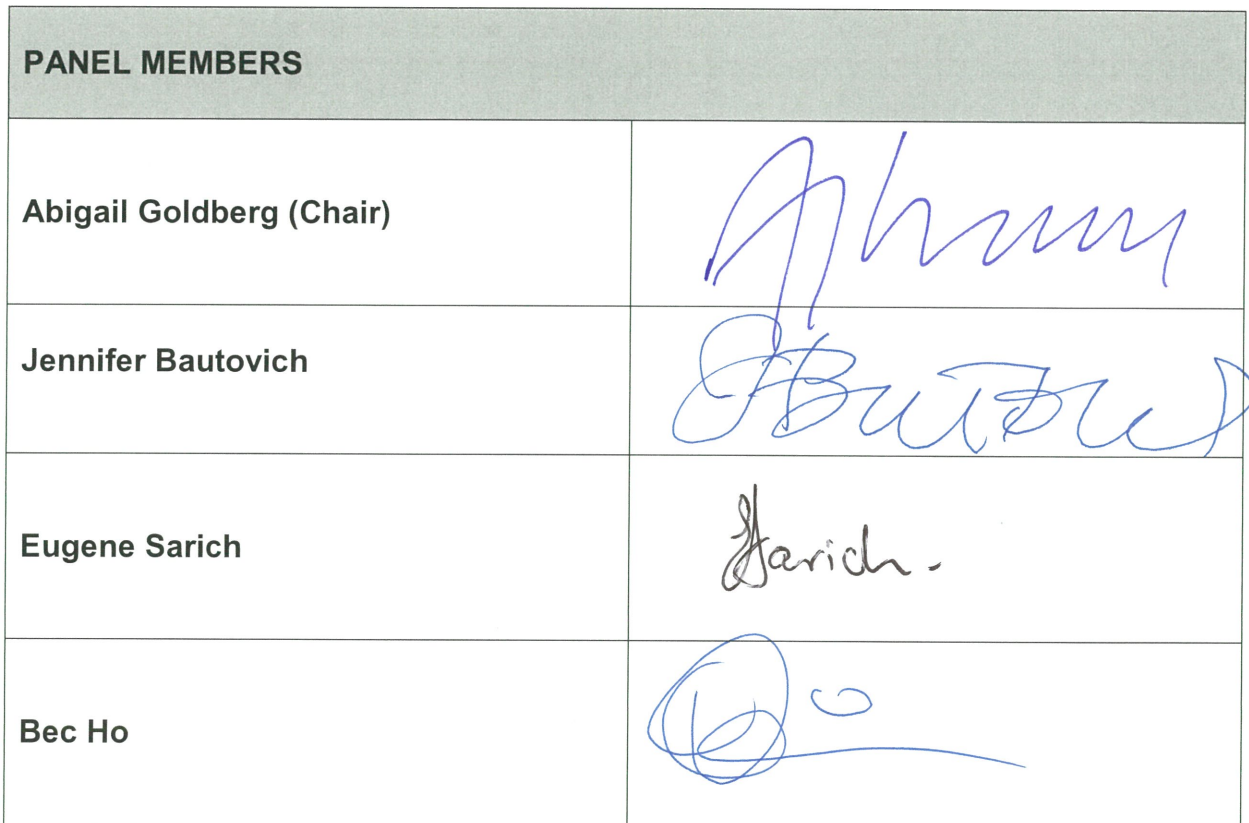 PANEL MEMBERS
Abigail Goldberg (Chair)
Jennifer Bautovich
Eugene Sarich
Sarich.
Bec Ho